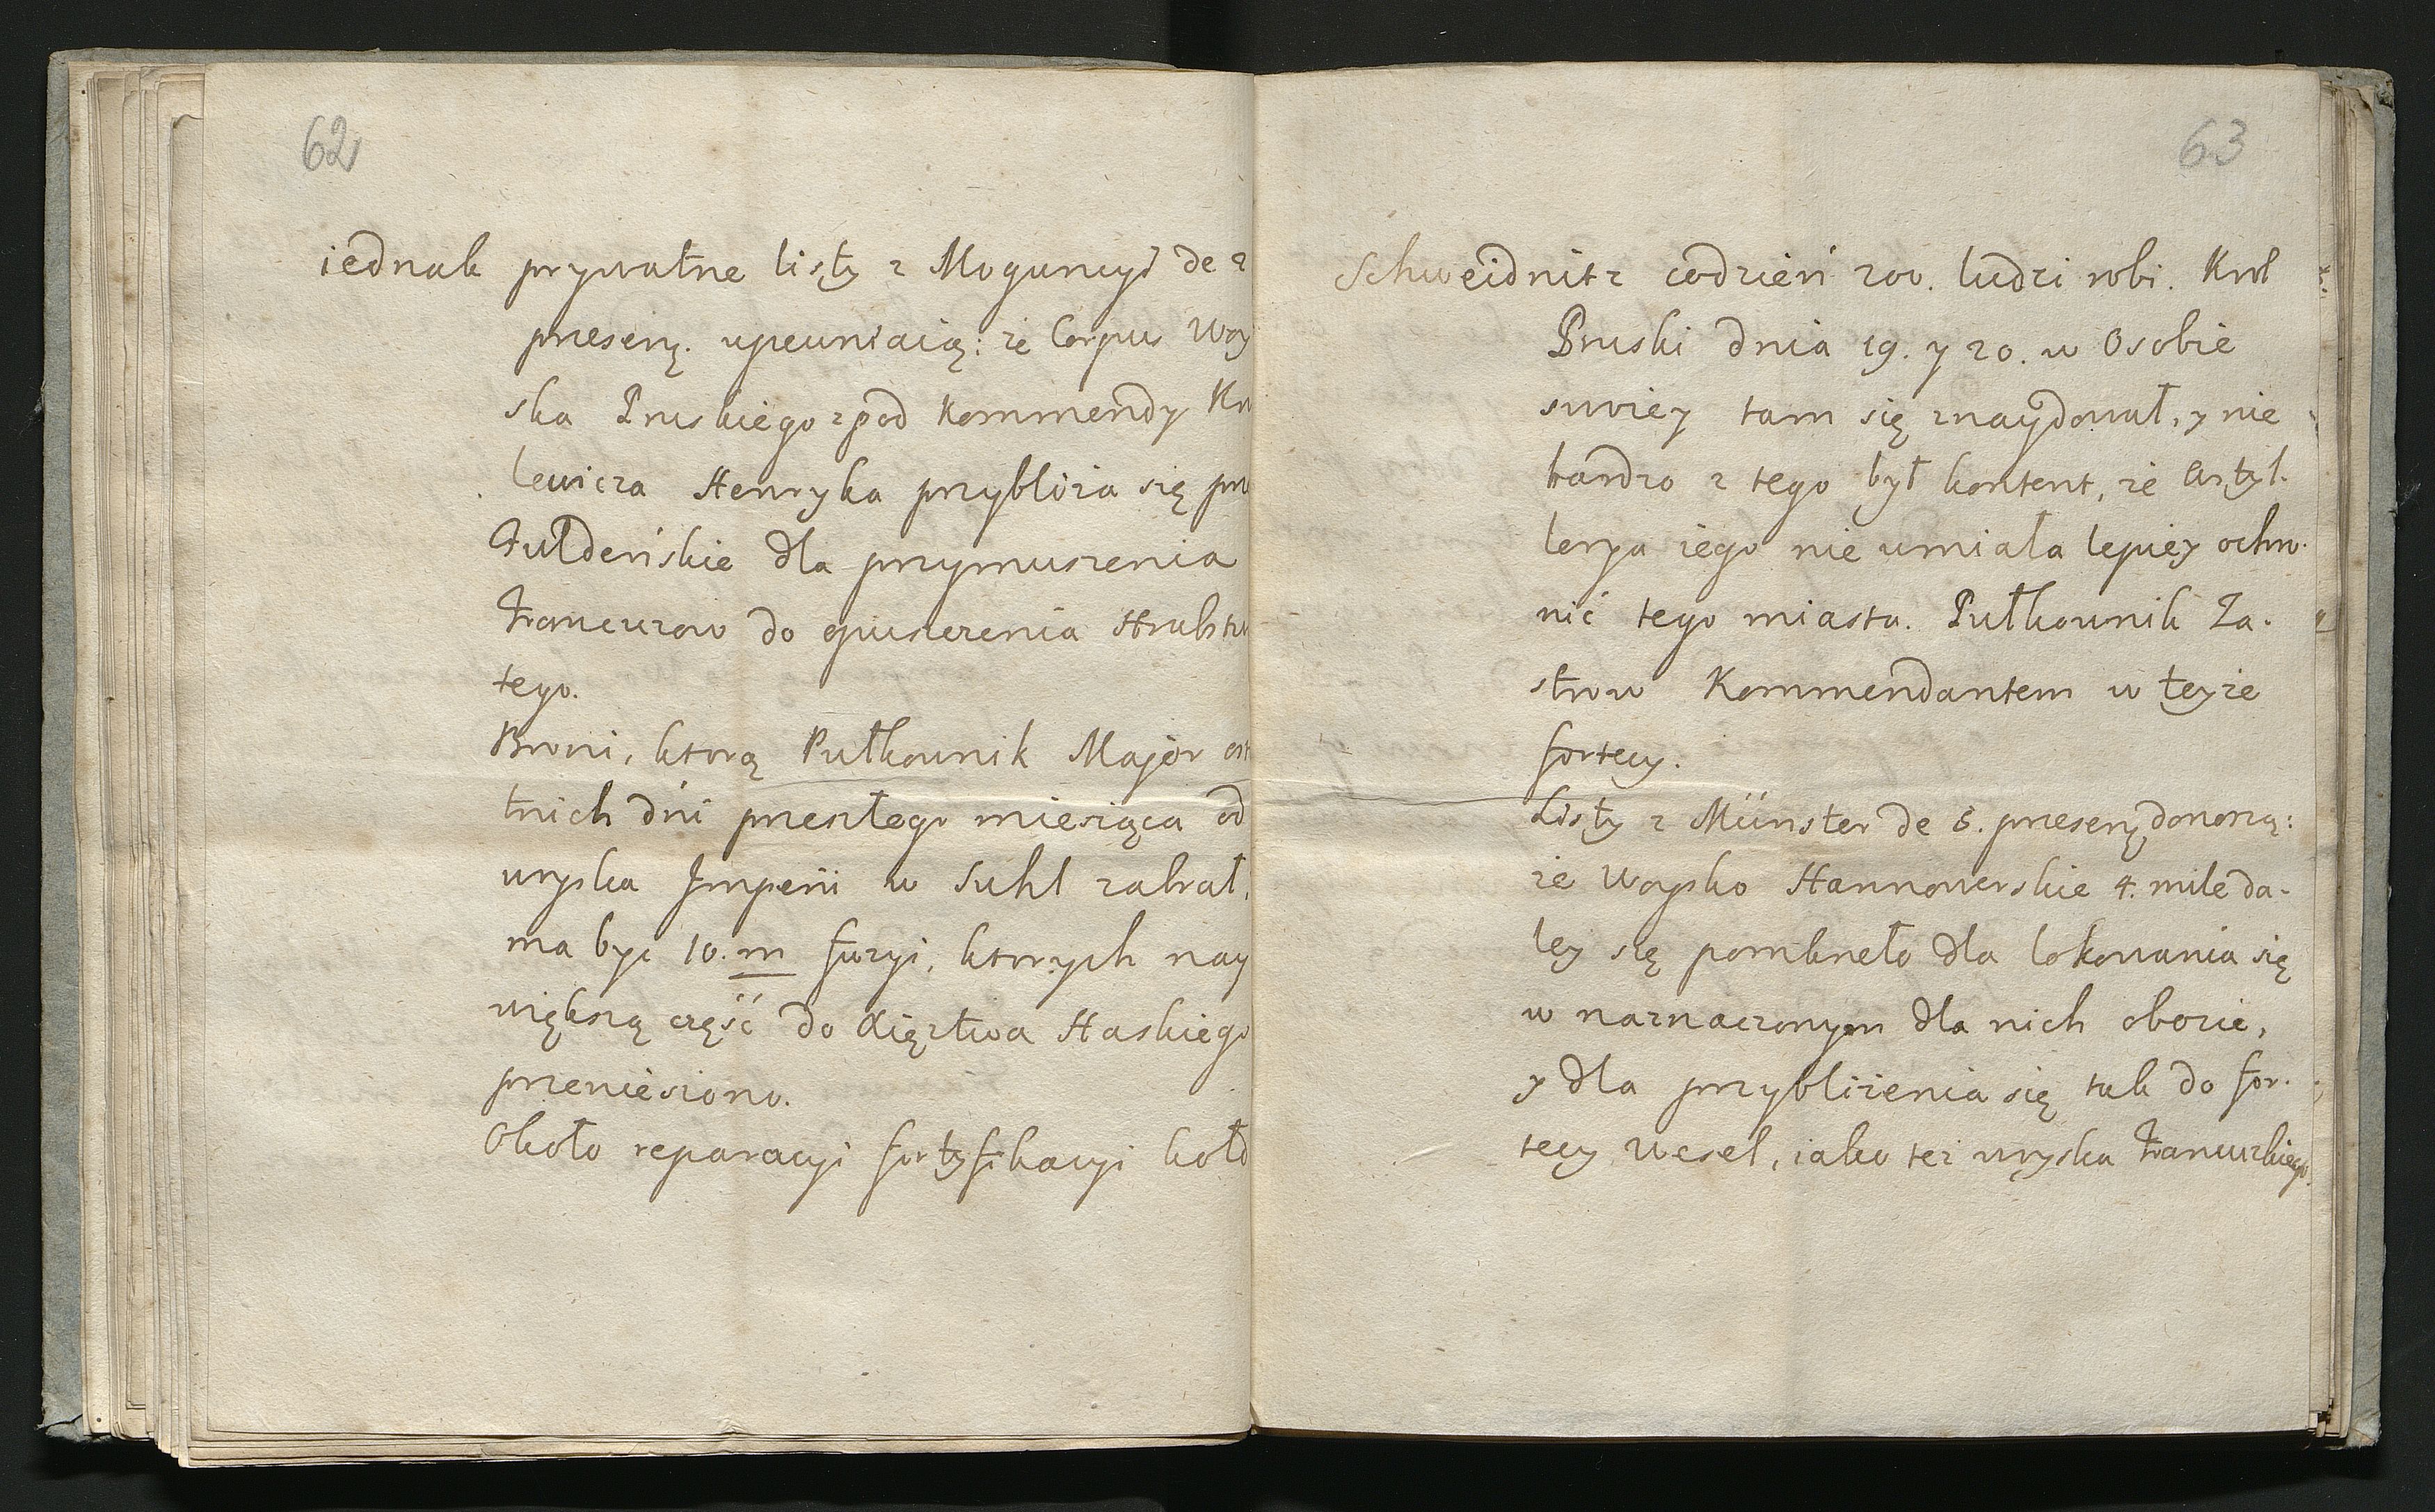 62
iednak prywatne listy z Moguncyi de 2
presenṭ. upewniaią: że Corpus Woy
ska Pruskiego zpod Kommendy Kro
lewicza Henryka przybliża się pro
Fuldeńskie dla przymuszenia
Francuzow do opuszczenia Hrabstw
tego.
Broni, ktorą Pułkownik Major ost
tnich dni przeszłego miesiąca od
woyska Imperii w Suhl zabrał,
ma byc 10. m fuzyi, ktorych nay
większą część do Xięztwa Haskiego
przeniesiono.
Około reparacyi fortyfikacyi koło
63
Schweidnitz codzień 200. ludzi robi. Krol
Pruski dnia 19. y 20. w Osobie
swoiey tam się znaydował, y nie
bardzo z tego był kontent, że Artyl-
lerya iego nie umiała lepiey ochro-
nić tego miasta. Pułkownik Za-
strow Kommendantem w teyże
fortecy.
Listy z Münster de 6. presenṭ donoszą:
że Woysko Hannowerskie 4. mile da-
ley się pomknęło dla lokowania się
w naznaczonym dla nich obozie,
y dla przybliżenia się tak do for-
tecy Wesel, iako też woyska Francuzkiego.